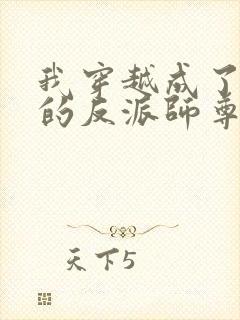 我穿越成了
的反派師尊
天下5